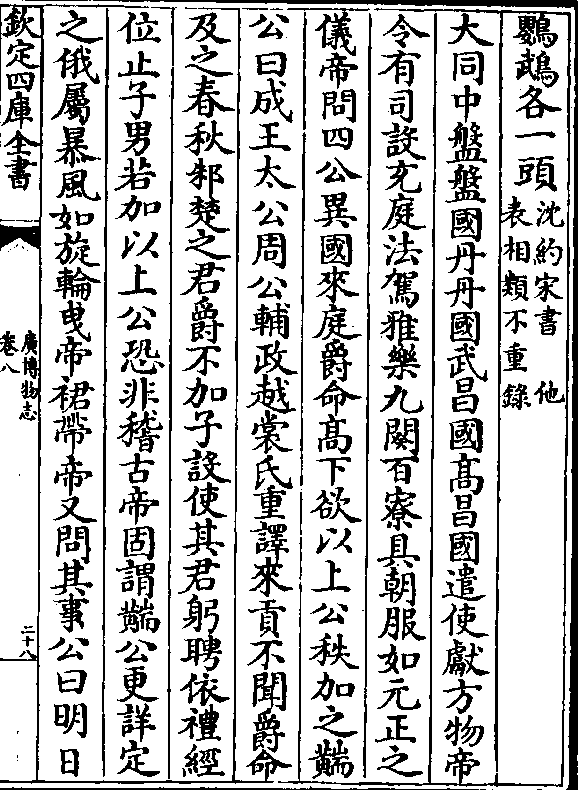 鸚鵡各一頭沈約宋書　他
表相類不重錄
大同中盤盤國丹丹國武昌國髙昌國遣使獻方物帝
令有司設充庭法駕雅樂九闋百寮具朝服如元正之
儀帝問四公異國來庭爵命髙下欲以上公秩加之䵎
公曰成王太公周公輔政越裳氏重譯來貢不聞爵命
及之春秋邾楚之君爵不加子設使其君躬聘依禮經
位止子男若加以上公恐非稽古帝固謂䵎公更詳定
之俄屬暴風如旋輪曵帝裙帶帝又問其事公曰明日
欽定四庫全書
廣博物志
卷八
二十八